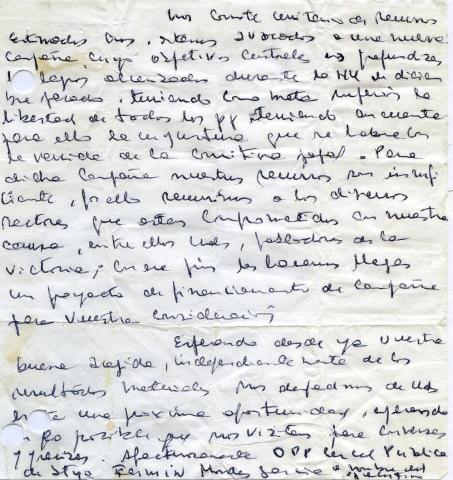 Estimados Uds, estamos avocados a una nueva
campaña cuyo objetivos centrales es profundizar
alcanzados durante la HH de diciem
bre pasado, teniendo como meta superior la
libertad de todos los pp teniendo en cuenta
para ello la coyuntura que se habre con
la venida de la comitiva papal. Para
dicha campaña nuestros recursos son insufi
ciente, por ello recurrimos a los diversos
sectores que estan comprometidos con nuestra
causa, entre ellos Uds, pobladores de la
victoria; con ese fin les hacemos llegar
un proyecto de financiamiento de campaña
para vuestra consideración
Esperando desde ya vuestra
buena acojida, independiente mente de los
resultados materiales nos despedimos de Uds
una proxima oportunidad, esperando
posible que nos visiten para conversar
Afectuosamente OPP Carcel Publica
de Stgo Fermin Montes García